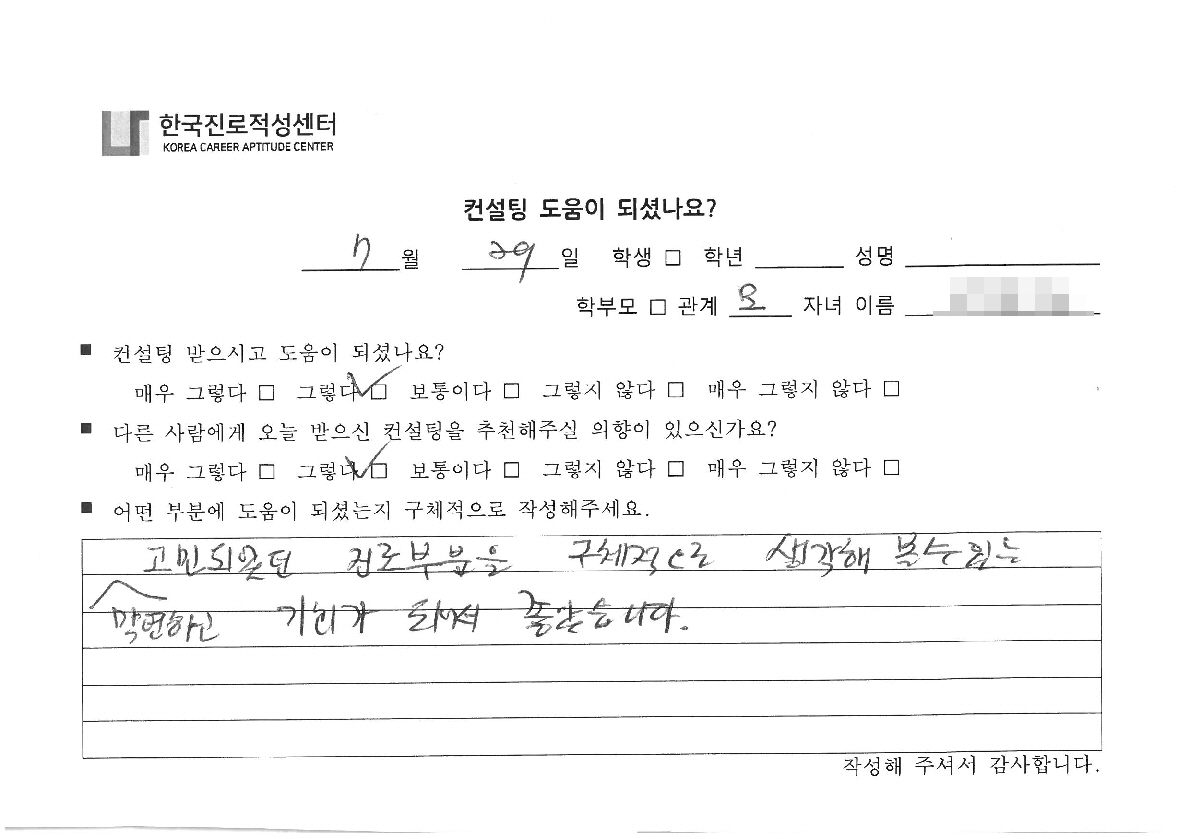 한국진로적성센터
KOREA CAREER APTITUDE CENTER
컨설팅 도움이 되셨나요?
7 월 29 일 학생 □ 학년 성명
학부모 □ 관계 모 자녀 이름
■ 컨설팅 받으시고 도움이 되셨나요?
매우 그렇다 □ 그렇다 ☑ 보통이다 □ 그렇지 않다 □ 매우 그렇지 않다 □
■ 다른 사람에게 오늘 받으신 컨설팅을 추천해주실 의향이 있으신가요?
매우 그렇다 □ 그렇다 ☑ 보통이다 □ 그렇지 않다 □ 매우 그렇지 않다 □
■ 어떤 부분에 도움이 되셨는지 구체적으로 작성해주세요.
고민되었던 진로부분을 구체적으로 생각해 볼수있는
막연하고 기회가 되서 좋았습니다.
작성해 주셔서 감사합니다.